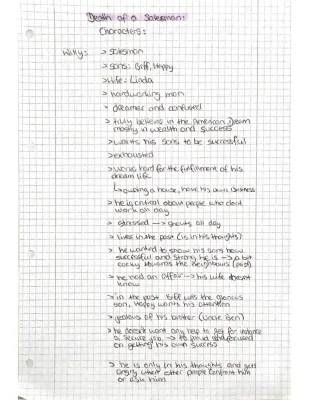 Death of a Salesman:
Characters:
Willy: > salesman
> sons: Biff, Happy
> wife: Linda
> hardworking man
> dreamer and confused
> fully believes in the American Dream
mostly in wealth and success
> wants his sons to be successful
> exhausted
> works hard for the fulfillment of his
dream life
↳ owning a house, have his own business
> he is critical about people who don't
work all day
> stressed → shouts all day
> lives in the past (is in his thoughts)
> he wanted to show his sons how
successful and strong he is → a bit
cocky towards the neighbours (past)
> he had an affair → his wife doesn't
know
> in the past Biff was the glorious
son, Happy wants his attention
> jealous of his brother (uncle Ben)
> he doesn't want any help to get for instance
a secure job → to proud and focused
on getting his own success
> he is only in his thoughts and gets
angry when other people confront him
or ask him